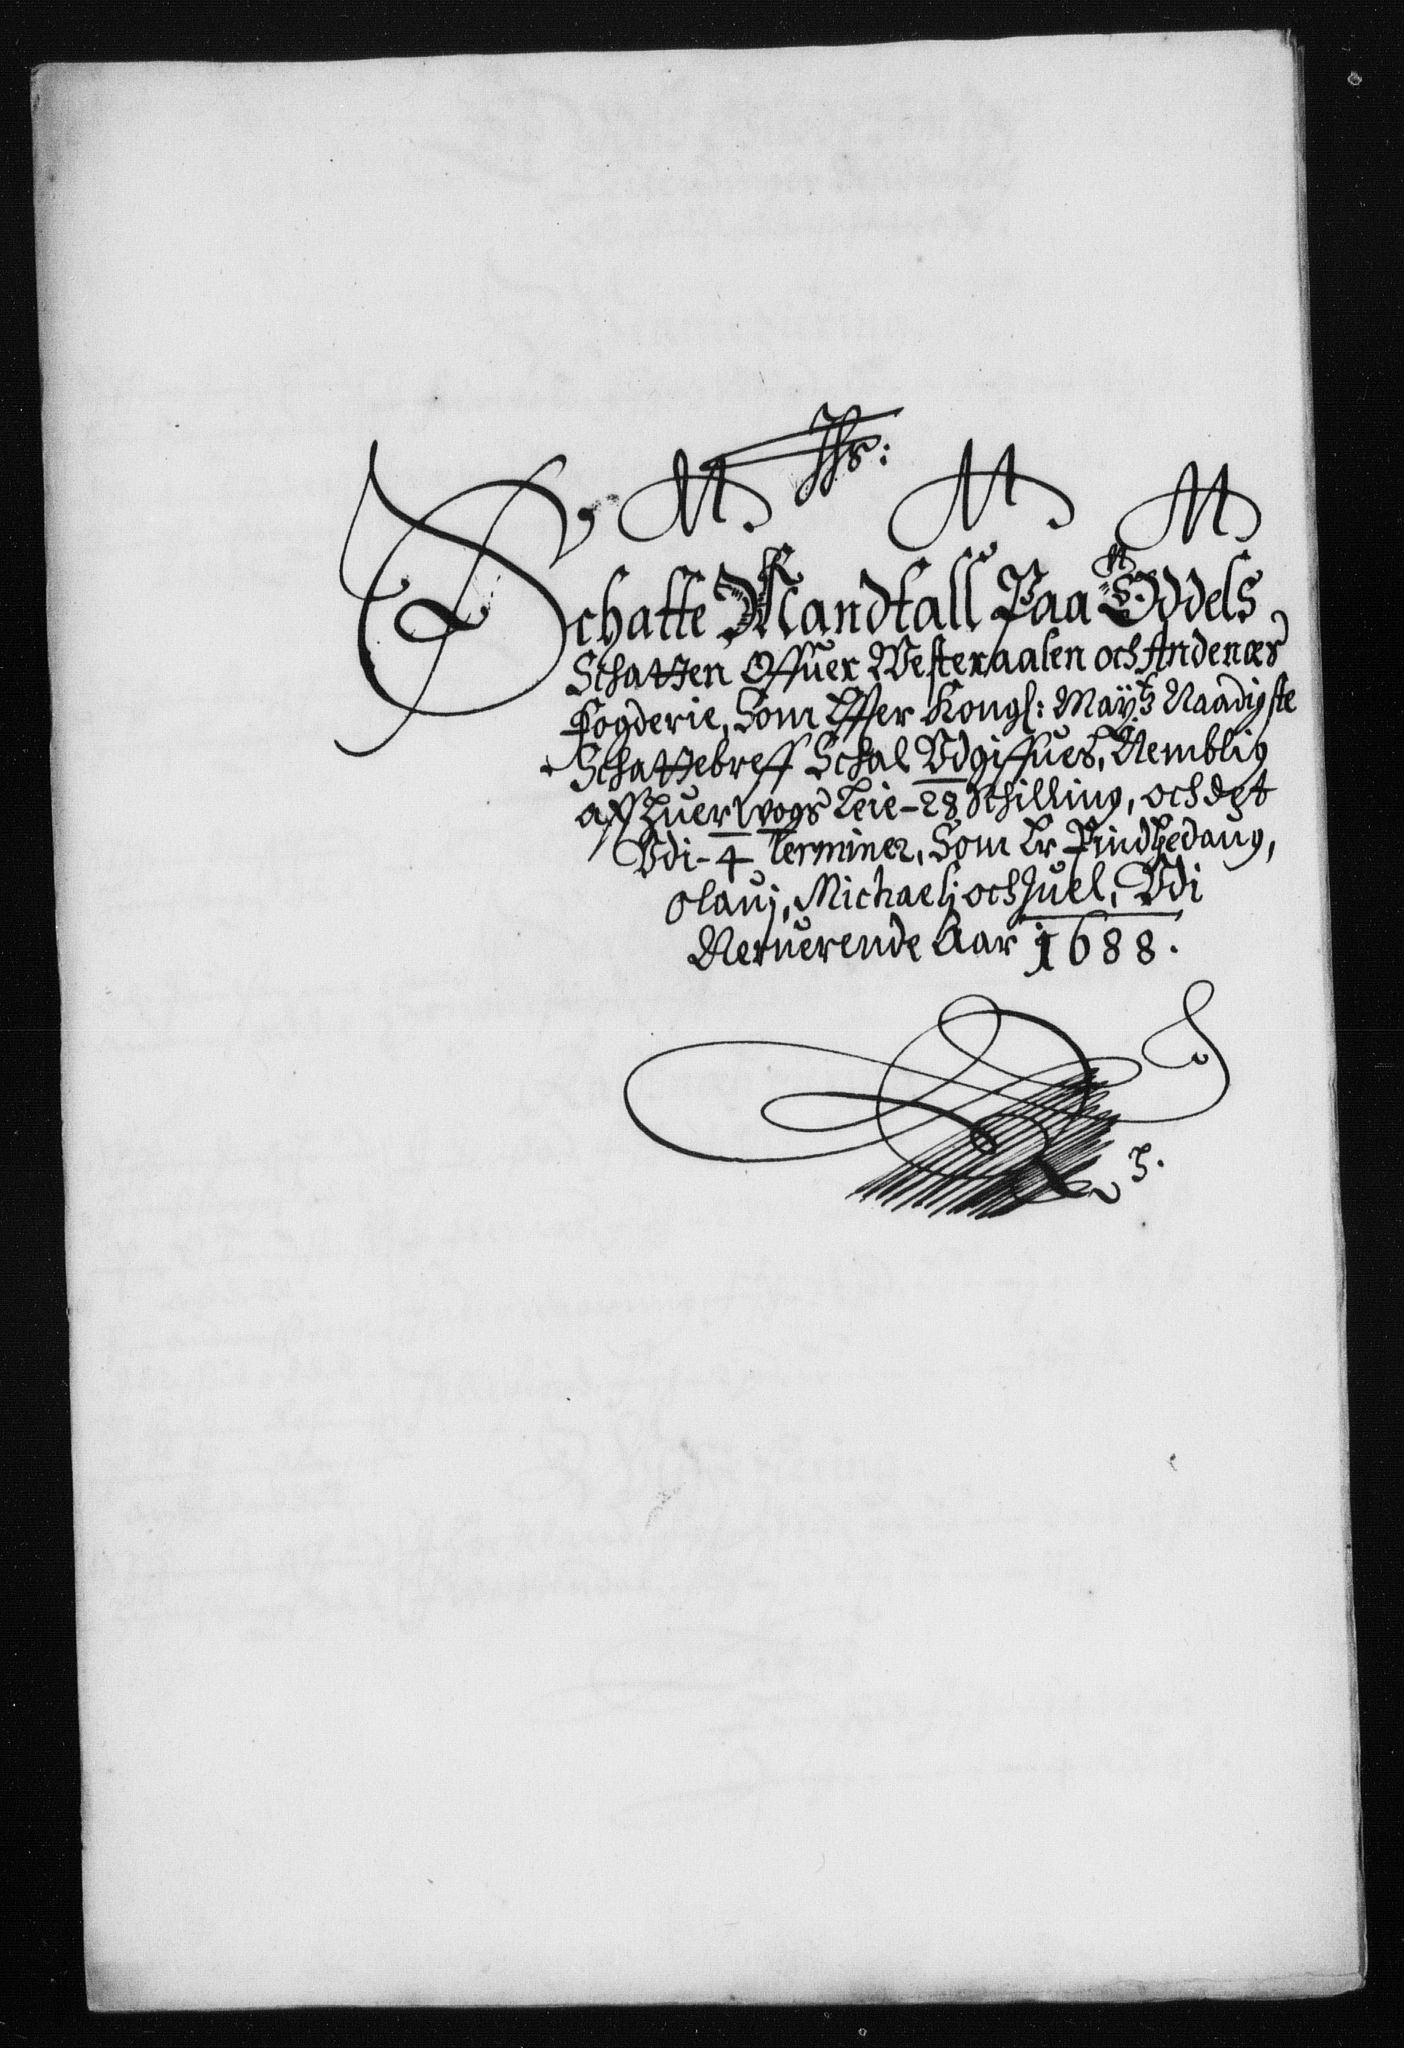 Jhs:
Schatte Mandtall Paa Oddels
Schatten Offuer Westeraalen och Andenæs
Fogderie, Som Effter Kongl: Mayts Naadigste
Schattebreff Schal Udgiffues, Nemblig
aff huer wogs Leie - 28 Schilling, och det
Udi - 4 Terminer, Som Er Pindtzedaug,
Olauj, Michaelj och Juel, Udi
Neruerende Aar 1688.
3.